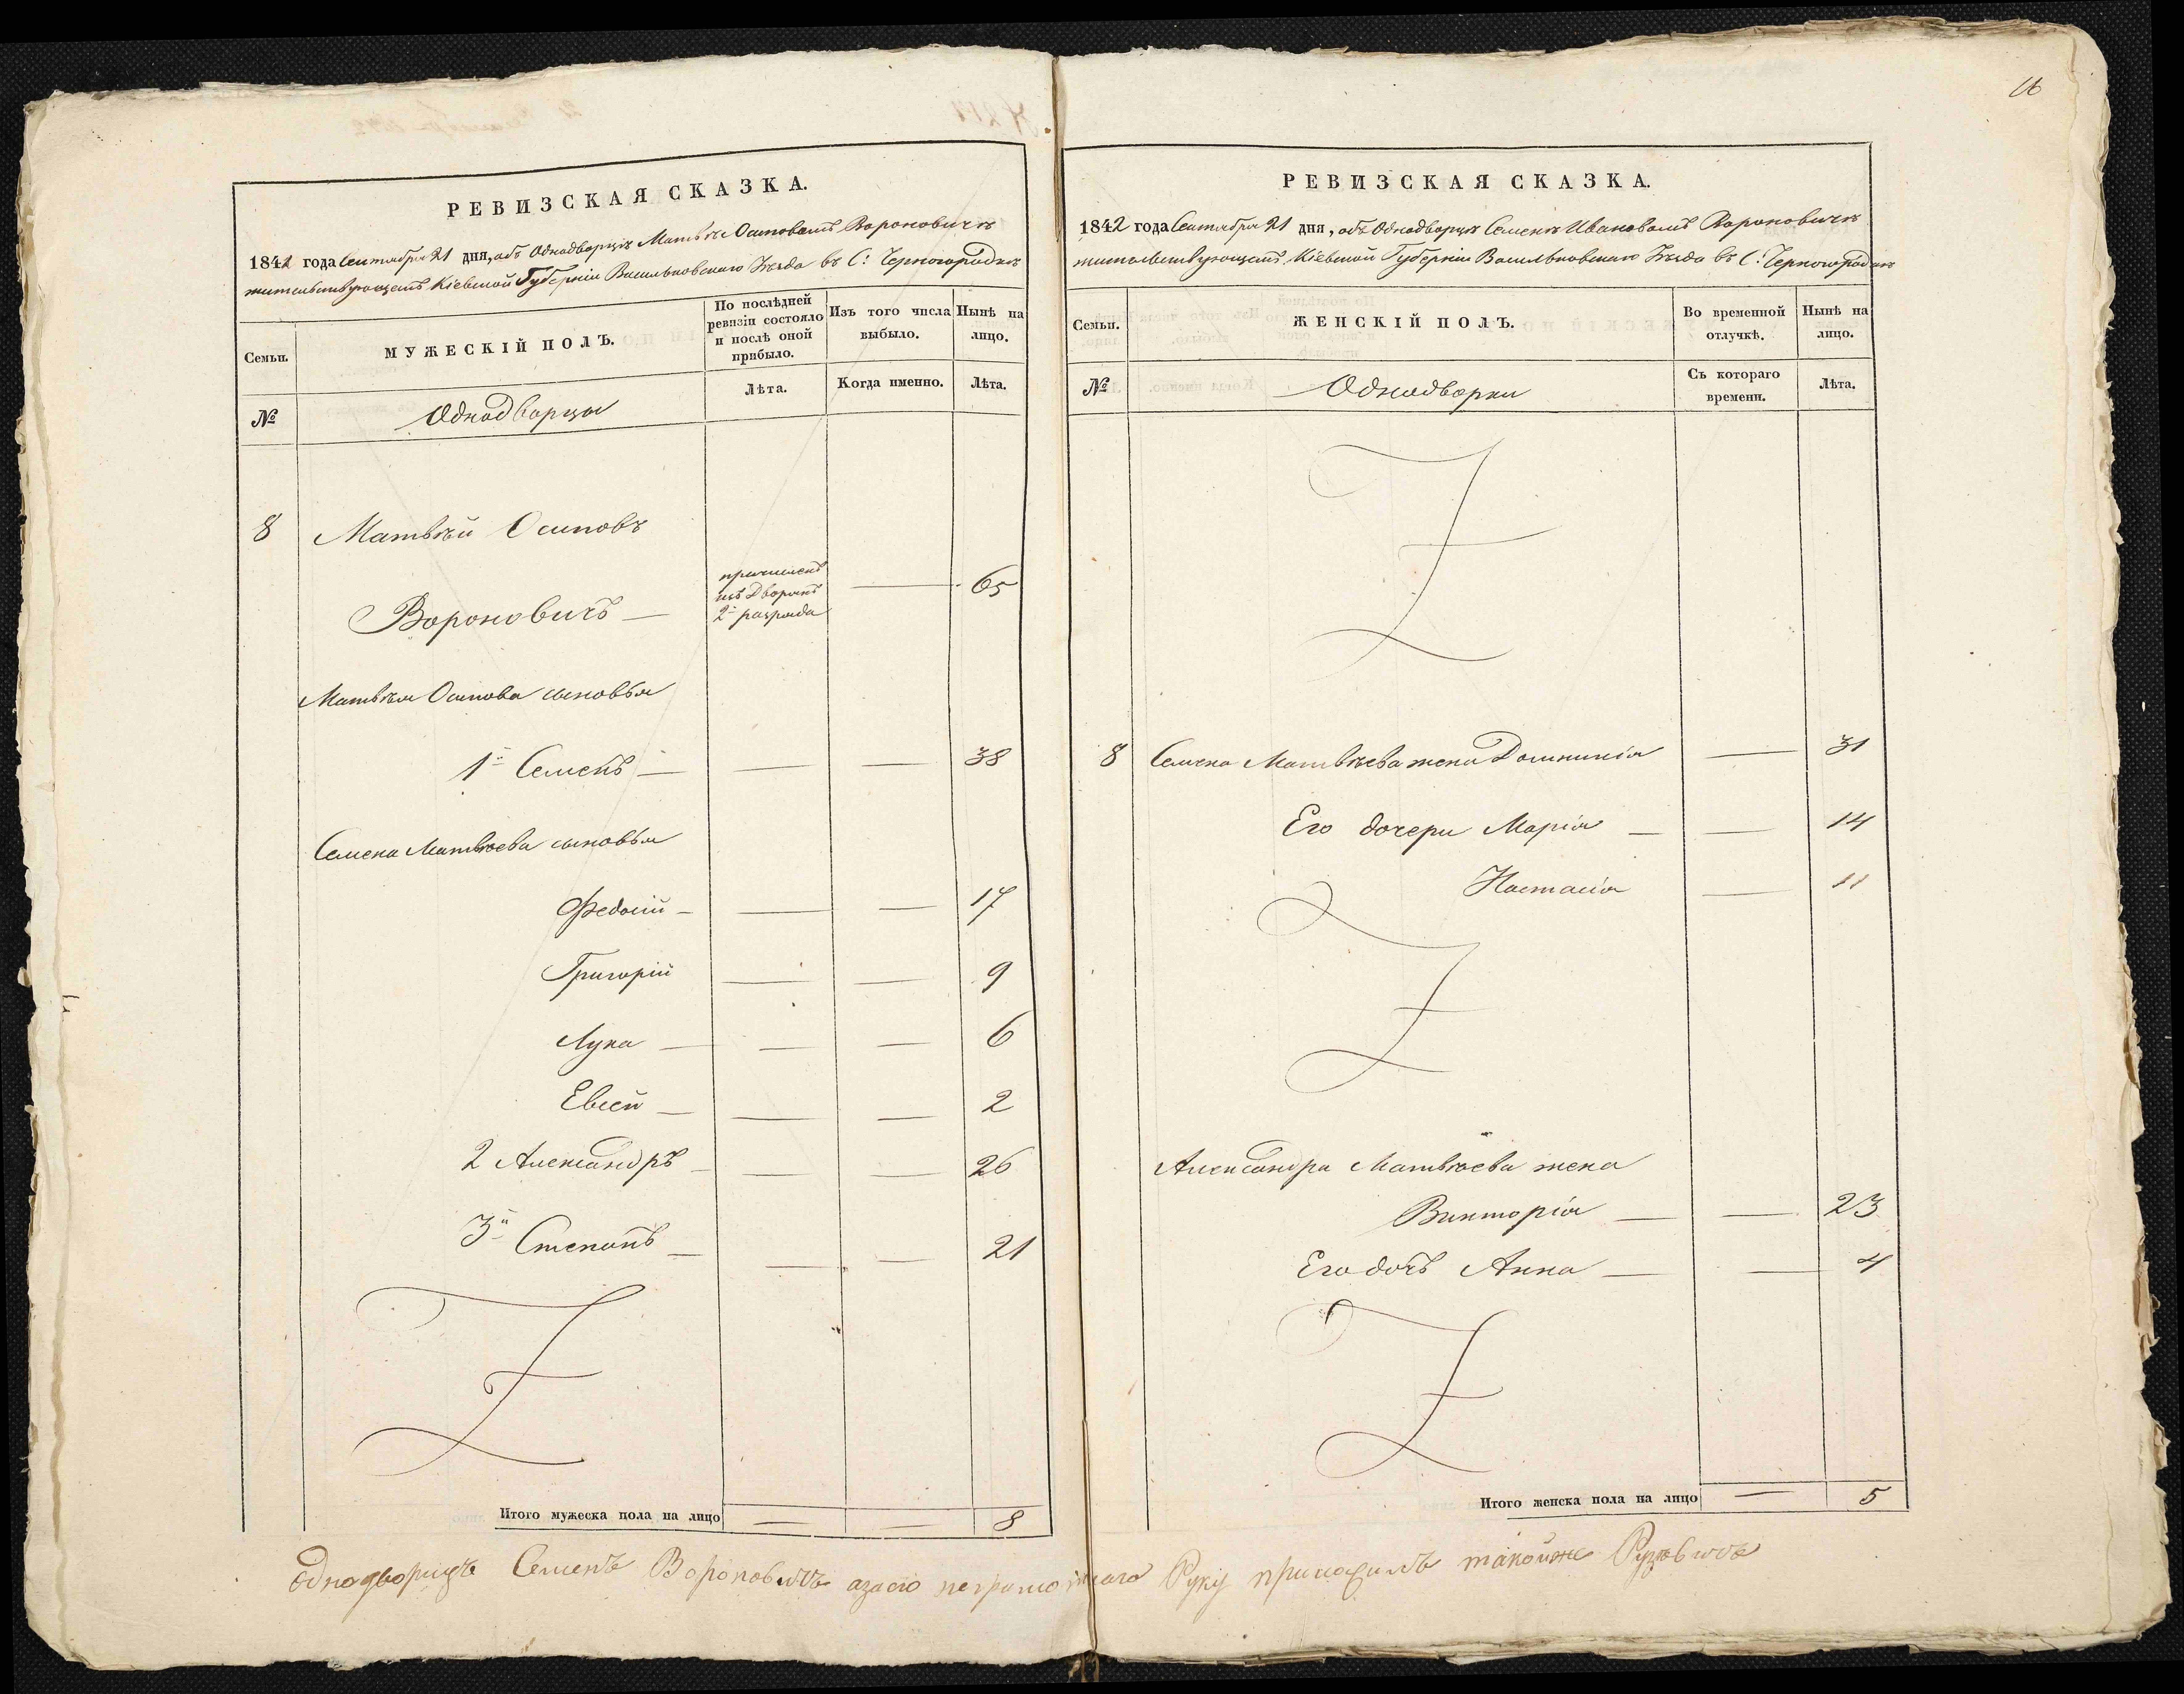 16
РЕВИЗСКАЯ СКАЗКА.
1842 года Сентября 21 дня, объ Однодворцѣ Матвѣе Осиповомъ Вороновичѣ
жительствующемъ Кіевской Губерніи Васильковскаго Уѣзда въ С: Черногородкѣ
Семьи.
МУЖЕСКІЙ ПОЛЪ.
По послѣдней ревизіи состояло и послѣ оной прибыло.
Изъ того числа выбыло.
Нынѣ на лицо.
№
Однодворцы
Лѣта.
Когда именно.
Лѣта.
8 Матвѣй Осиповъ
Вороновичъ — причисленъ изъ Дворянъ 2й разряда — 65
Матвѣя Осипова сыновья
1й Семенъ — — — 38
Семена Матвѣева сыновья
Федосій — — — 17
Григорій — — 9
Лука — — — 6
Евсей — — — 2
2 Александръ — — — 26
3й Степанъ — — — 21
Итого мужеска пола на лицо — — 8
РЕВИЗСКАЯ СКАЗКА.
1842 года Сентября 21 дня, объ Однодворцѣ Семенѣ Ивановомъ Вороновичѣ
жительствующемъ Кіевской Губерніи Васильковскаго Уѣзда въ С: Черногородкѣ
Семьи.
ЖЕНСКІЙ ПОЛЪ.
Во временной отлучкѣ.
Нынѣ на лицо.
№
Однодворки
Съ котораго времени.
Лѣта.
8 Семена Матвѣева жена Домникія — 31
Его дочери Марія — — 14
Настасія — 11
Александра Матвѣева жена
Викторія — — 23
Его дочь Анна — — 4
Итого женска пола на лицо — 5
однодворицъ Семенъ Вороновичъ азаого неграмотнаго Руку приложилъ такойже